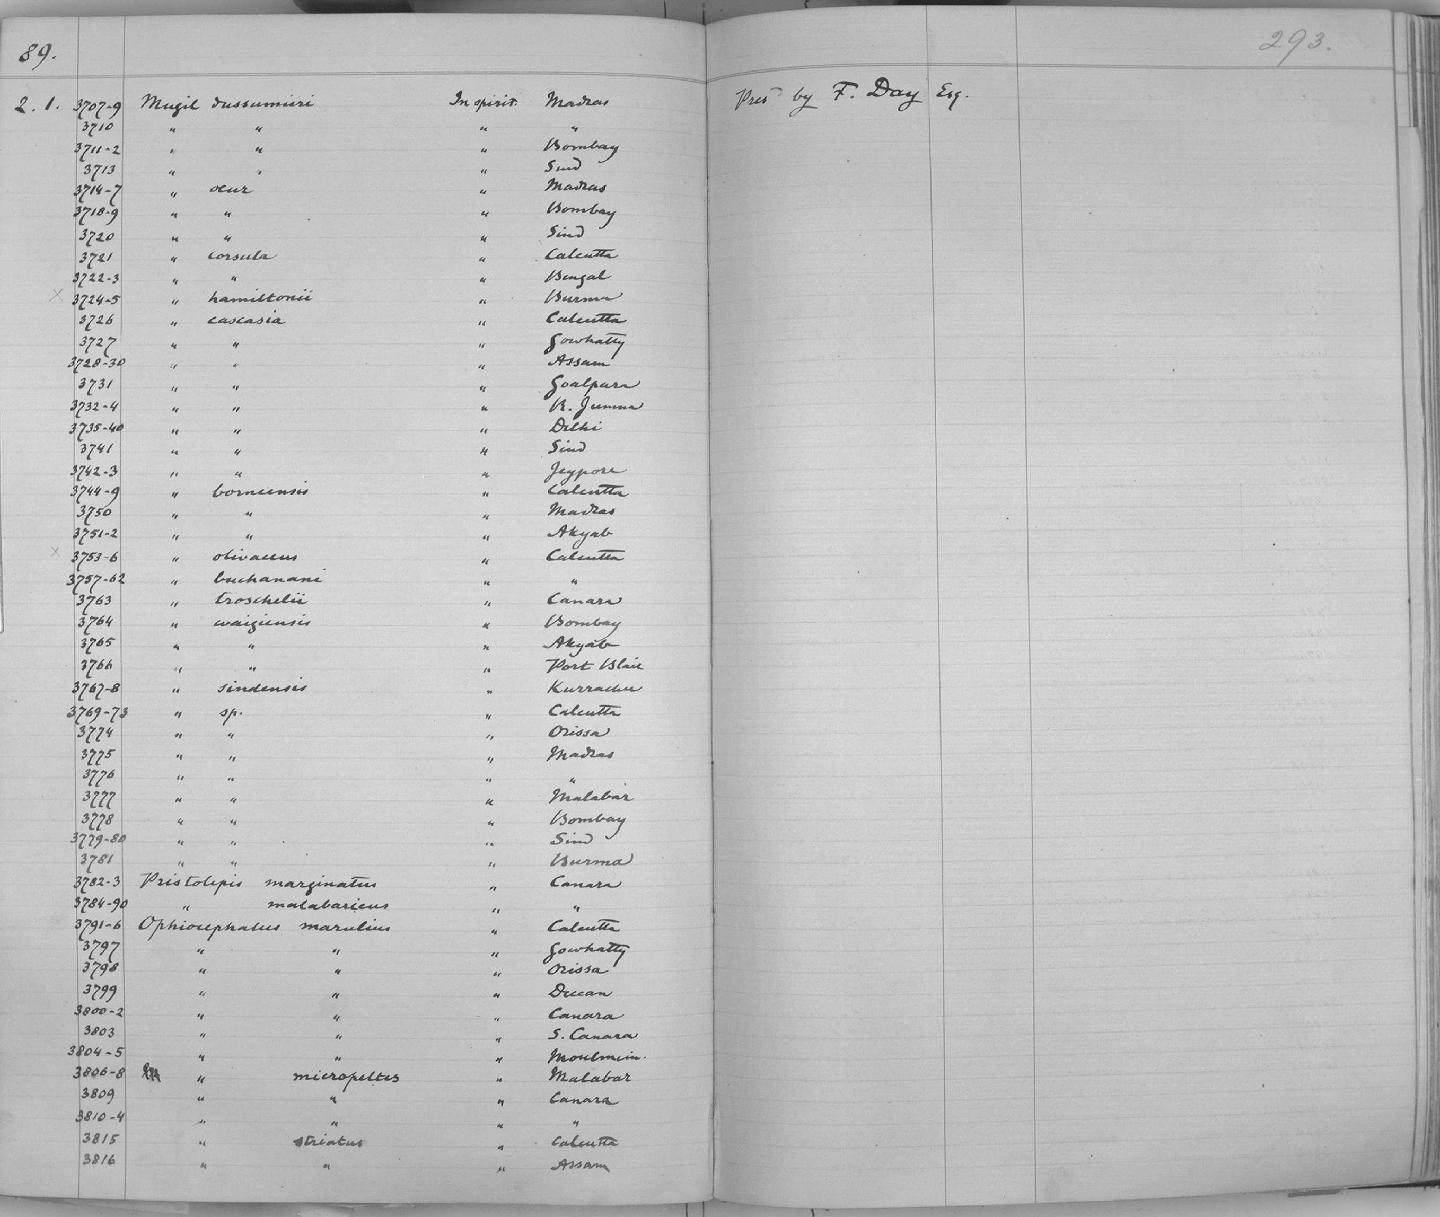 89.
293.
2. 1. 3707-9 Mugil dussumieri In spirit Madras Pres^d by F. Day Esq.
3710 " " " "
3711-2 " " " Bombay
3713 " " " Sind
3714-7 " oeur " Madras
3718-9 " " " Bombay
3720 " " " Sind
3721 " corsula " Calcutta
3722-3 " " " Bengal
× 3724-5 " hamiltonii " Burma
3726 " cascasia " Calcutta
3727 " " " Gowhatty
3728-30 " " " Assam
3731 " " " Goalpara
3732-4 " " " R. Jumna
3735-40 " " " Delhi
3741 " " " Sind
3742-3 " " " Jeypore
3744-9 " borneensis " Calcutta
3750 " " " Madras
3751-2 " " " Akyab
× 3753-6 " olivaceus " Calcutta
3757-62 " buchanani " "
3763 " troschelii " Canara
3764 " waigiensis " Bombay
3765 " " " Akyab
3766 " " " Port Blair
3767-8 " sindensis " Kurrachee
3769-73 " sp. " Calcutta
3774 " " " Orissa
3775 " " " Madras
3776 " " " "
3777 " " " Malabar
3778 " " " Bombay
3779-80 " " " Sind
3781 " " " Burma
3782-3 Pristolepis marginatus " Canara
3784-90 " malabaricus " "
3791-6 Ophiocephalus marulius " Calcutta
3797 " " " Gowhatty
3798 " " " Orissa
3799 " " " Deccan
3800-2 " " " Canara
3803 " " " S. Canara
3804-5 " " " Moulmein.
3806-8 " micropeltes " Malabar
3809 " " " Canara
3810-4 " " " "
3815 " striatus " Calcutta
3816 " " " Assam